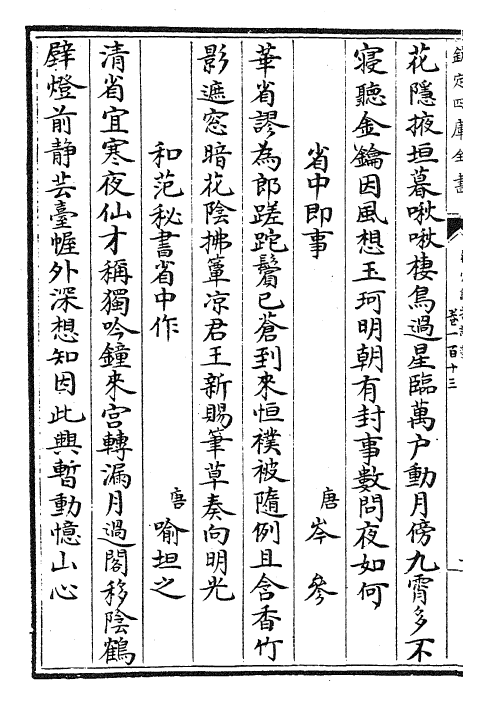 欽定四庫全書
卷一百十三
花隱掖垣暮啾啾棲鳥過星臨萬户動月傍九霄多不
寢聽金鑰因風想玉珂明朝有封事數問夜如何
省中即事 唐 岑參
華省謬為郎蹉跎鬢已蒼到來恒襆被隨例且含香竹
影遮窓暗花陰拂簟凉君王新賜筆草奏向明光
和范秘書省中作 唐 喻坦之
清省宜寒夜仙才稱獨吟鐘來宫轉漏月過閣移陰鶴
避燈前静芸臺幄外深想知因此興暫動憶山心